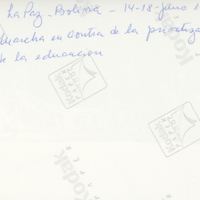 La Paz - Bolivia - 14-18-junio
Marcha en contra de la privatiza
de la educacion
Kodak
Kodak
Kodak